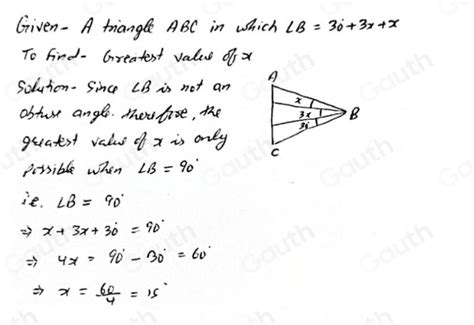 Given- A triangle ABC in which LB = 30+3x+x
To find- Greatest value of x
Solution- Since LB is not an
obtuse angle. therefore, the
greatest value of x is only
possible when LB = 90°
i.e. LB = 90°
⇒ x + 3x + 30 = 90°
⇒ 4x = 90° - 30° = 60°
⇒ x = 60/4 = 15°
A
x
3x
30
B
C
Gauth